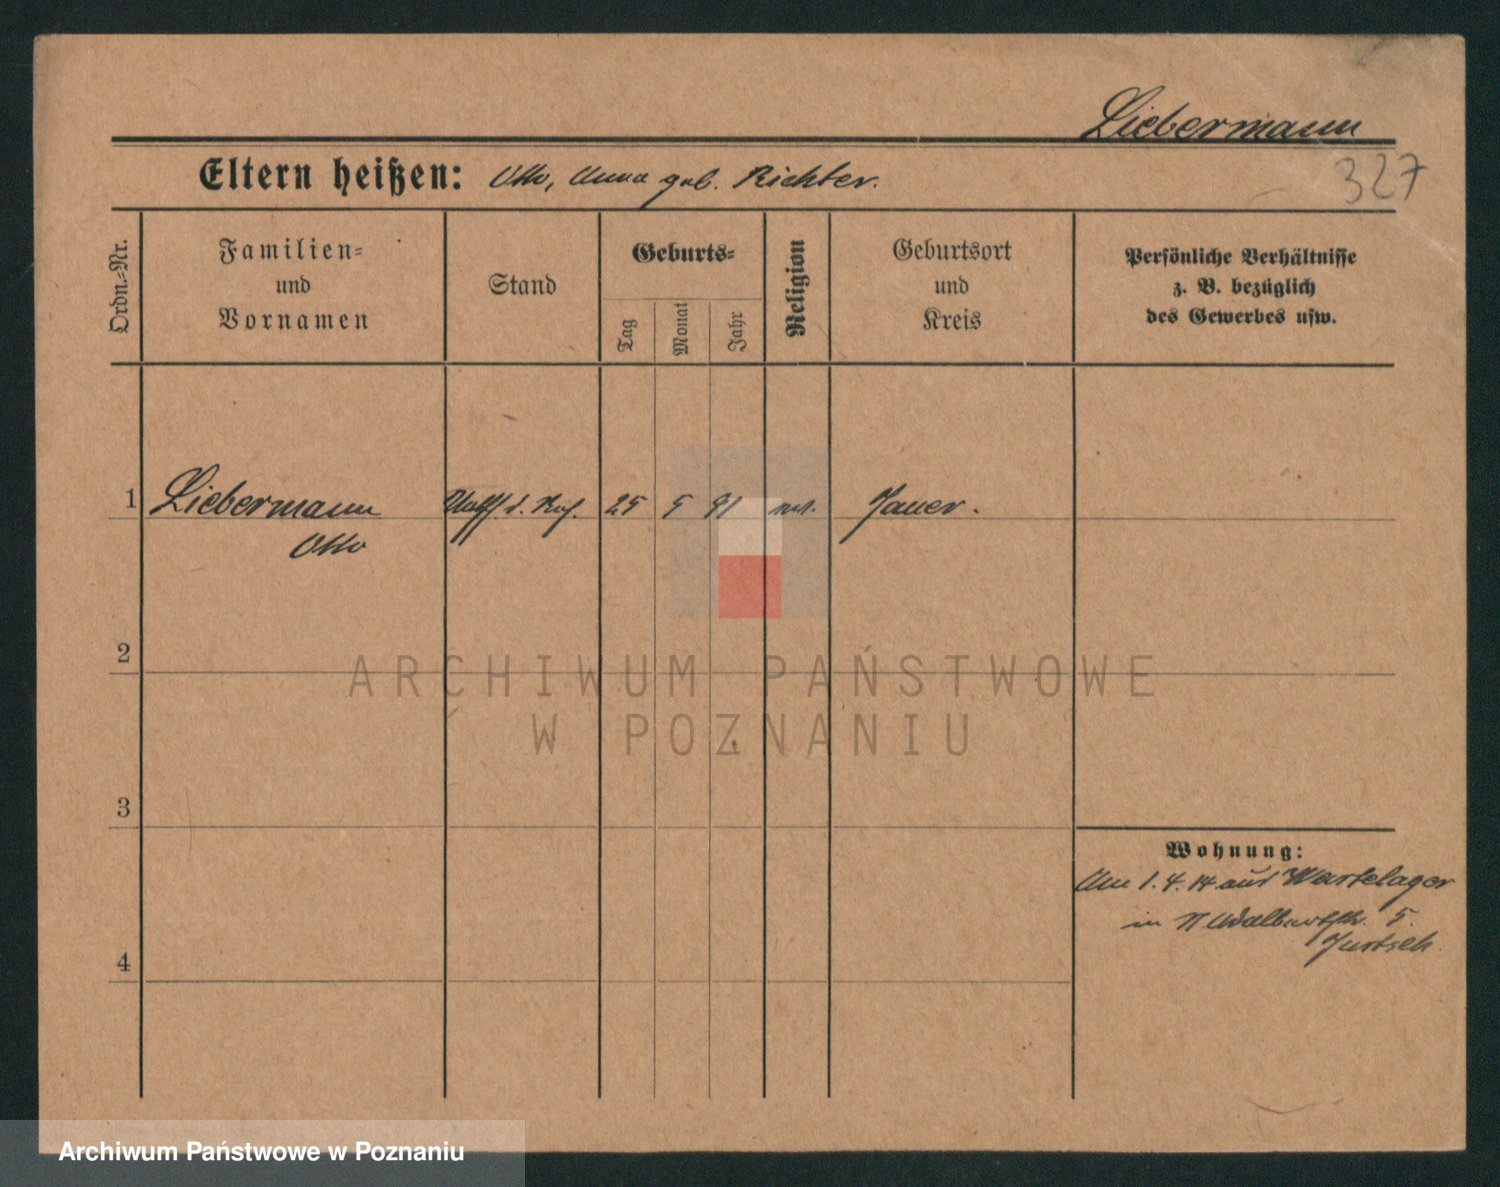 Liebermann
Eltern heißen: Otto, Anna geb. Richter.
327
Ordn.=Nr.
Familien=
und
Vornamen
Stand
Geburts=
Tag
Monat
Jahr
Religion
Geburtsort
und
Kreis
Persönliche Verhältnisse
z. B. bezüglich
des Gewerbes usw.
1 Liebermann 25 5 91 Jauer.
Otto
2
ARCHIWUM PAŃSTWOWE
W POZNANIU
3
Wohnung:
Am 1.4.14 aus Wartelager
in 5.
4
Archiwum Państwowe w Poznaniu